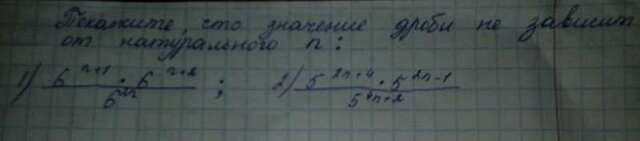 Покажите, что значение дроби не зависит
от натурального n:
1) 6^{n+1} · 6^{n+2} / 6^{2n} ; 2) 5^{2n+4} · 5^{2n-1} / 5^{4n+2}